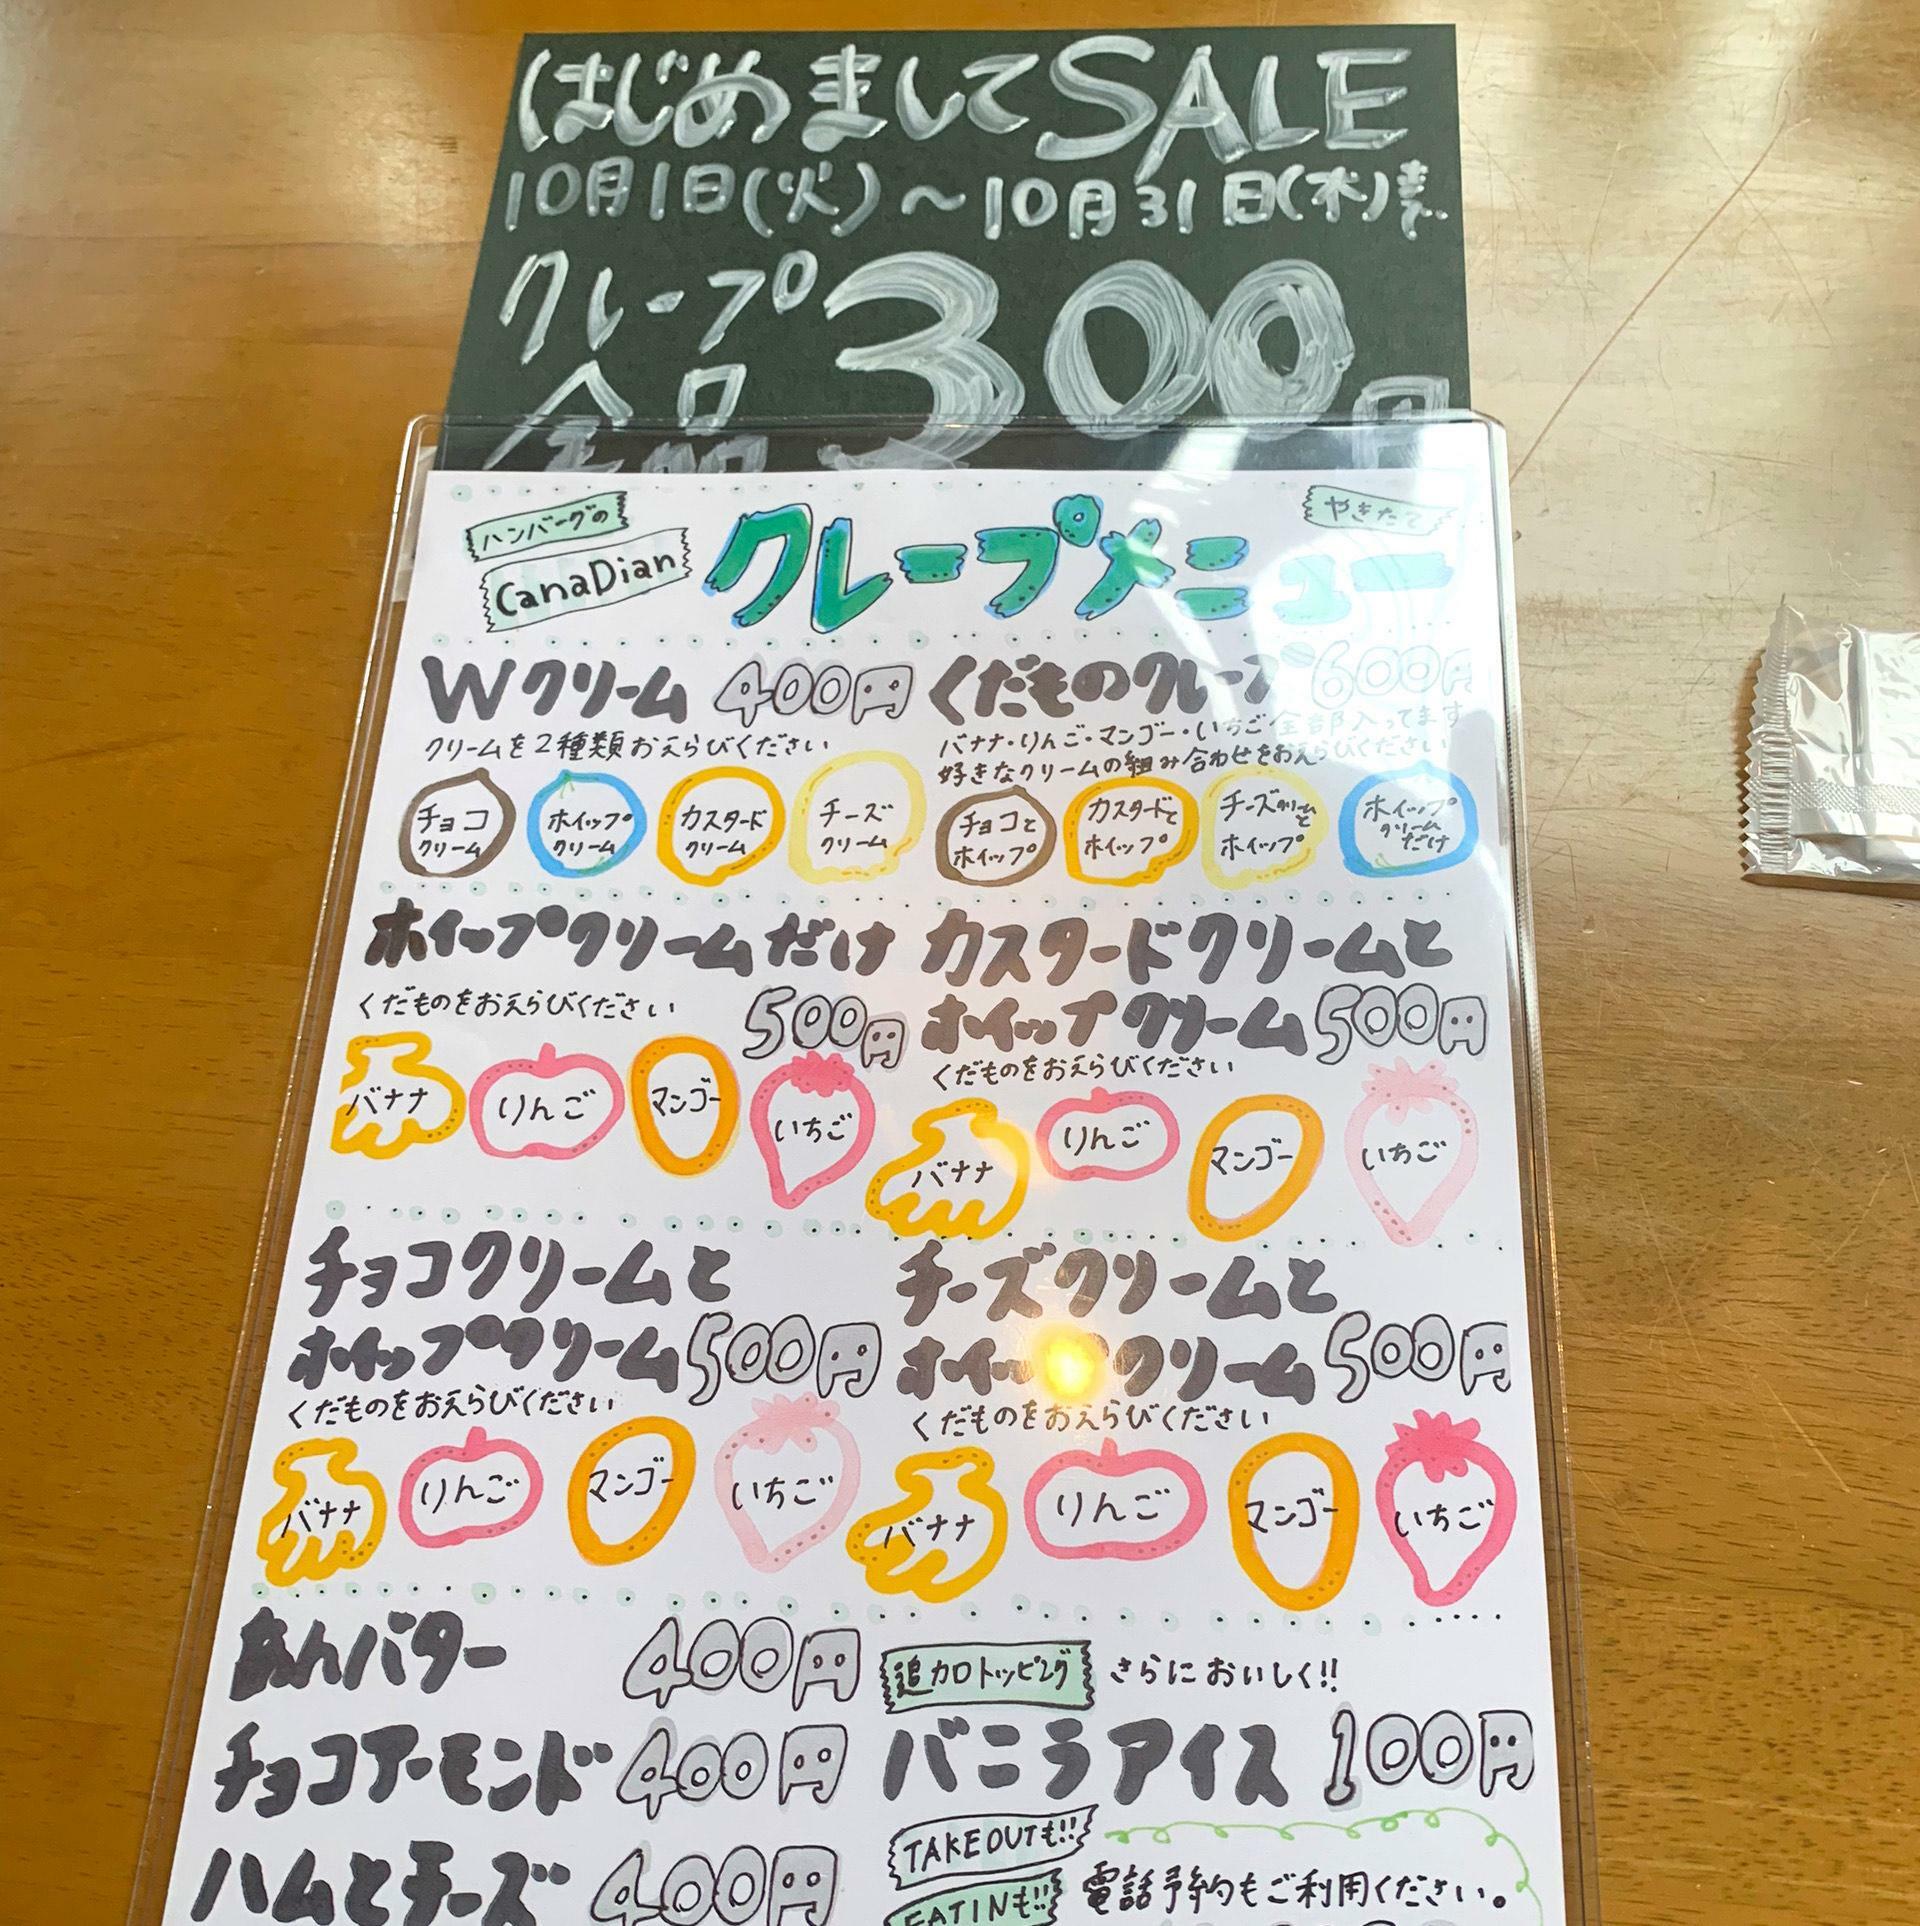 はじめましてSALE
10月1日(火)〜10月31日(木)まで
クレープ
全品 300円
ハンバーグの
CanaDian
クレープメニュー
やきたて
Wクリーム 400円
クリームを2種類おえらびください
チョコクリーム
ホイップクリーム
カスタードクリーム
チーズクリーム
くだものクレープ 600円
バナナ・りんご・マンゴー・いちご全部入ってます
好きなクリームの組み合わせをおえらびください
チョコとホイップ
カスタードとホイップ
チーズクリームとホイップ
ホイップクリームだけ
ホイップクリームだけ
500円
くだものをおえらびください
バナナ りんご マンゴー いちご
カスタードクリームと
ホイップクリーム 500円
くだものをおえらびください
バナナ りんご マンゴー いちご
チョコクリームと
ホイップクリーム 500円
くだものをおえらびください
バナナ りんご マンゴー いちご
チーズクリームと
ホイップクリーム 500円
くだものをおえらびください
バナナ りんご マンゴー いちご
あんバター 400円
チョコアーモンド 400円
ハムとチーズ 400円
追加トッピング さらにおいしく!!
バニラアイス 100円
TAKEOUTも!!
EATINも!!
電話予約もご利用ください。